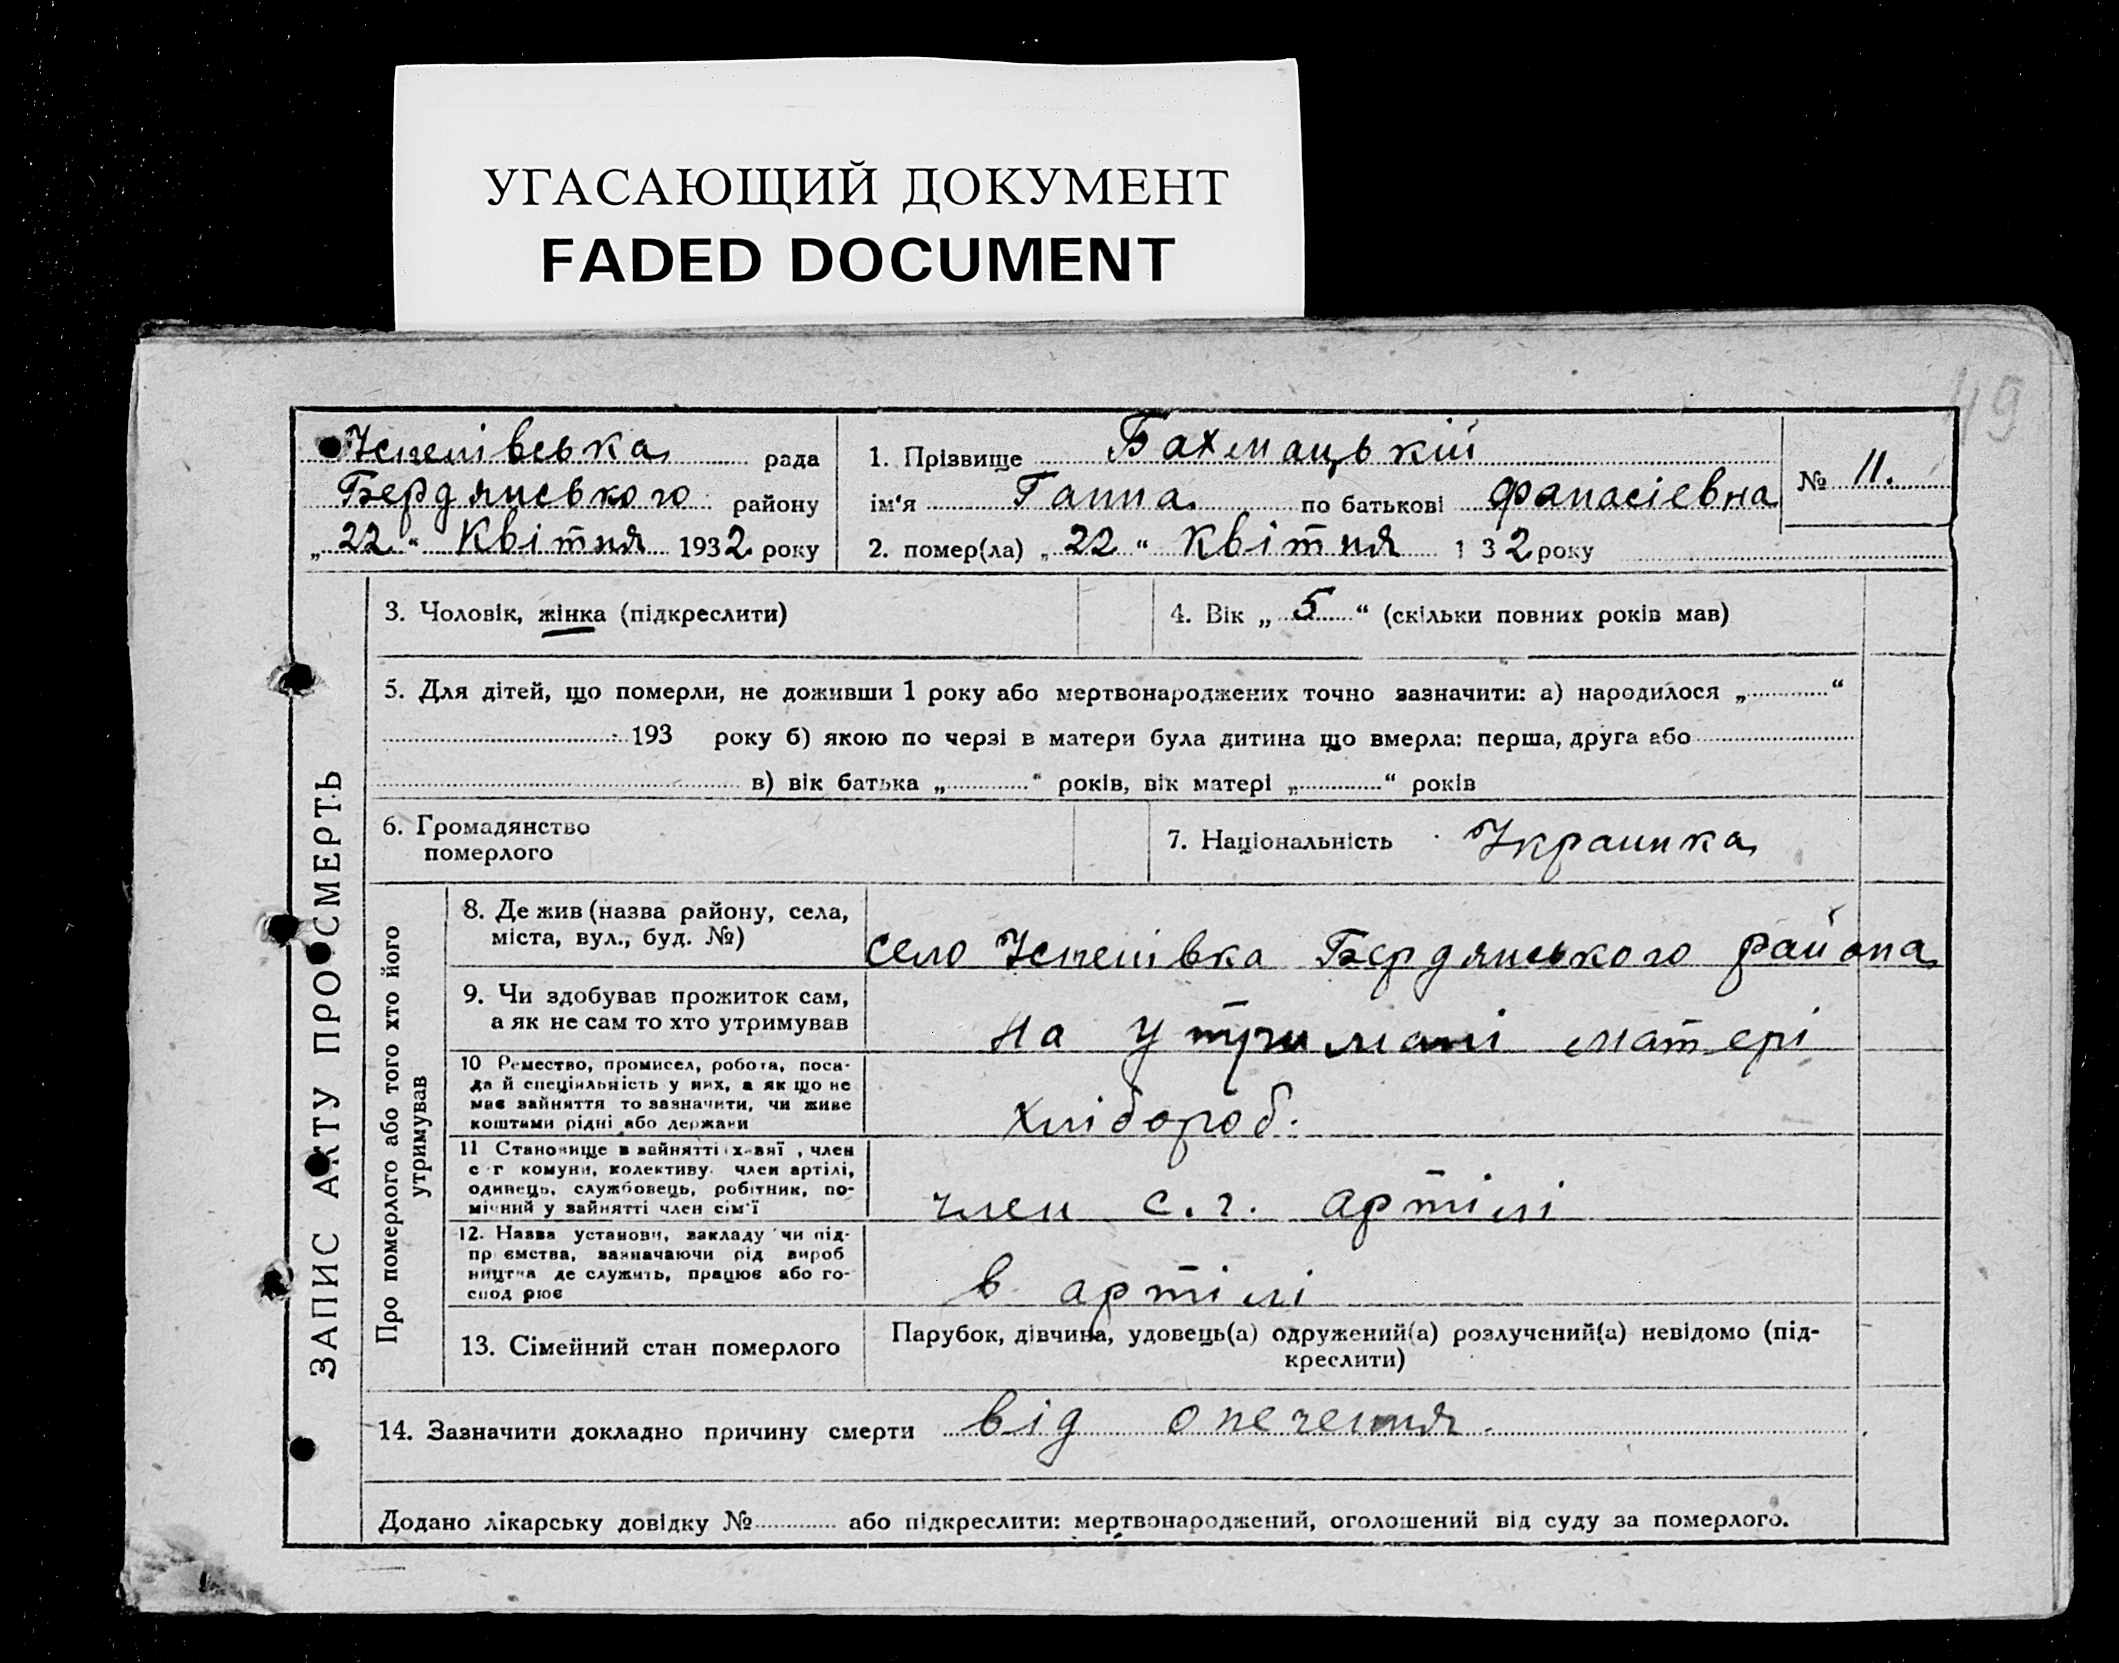 УГАСАЮЩИЙ ДОКУМЕНТ
FADED DOCUMENT
49
Успенівська рада
Бердянського району
„ 22 “ Квітня 1932 року
1. Прізвище Бахмацькій
ім'я Ганна по батькові Фанасіевна
2. помер(ла) „ 22 “ Квітня 1 32 року
№ 11.
ЗАПИС АКТУ ПРО СМЕРТЬ
3. Чоловік, жінка (підкреслити)
4. Вік „ 5 “ (скільки повних років мав)
5. Для дітей, що померли, не доживши 1 року або мертвонароджених точно зазначити: а) народилося „ “
193 року б) якою по черзі в матери була дитина що вмерла: перша, друга або
в) вік батька „ “ років, вік матері „ “ років
6. Громадянство
померлого
7. Національність Украинка
Про померлого або того хто його
утримував
8. Де жив (назва району, села,
міста, вул., буд. №)
село Успенівка Бердянського района
9. Чи здобував прожиток сам,
а як не сам то хто утримував
на утримані матері
10 Ремество, промисел, робота, поса-
да й спеціяльність у них, а як що не
має зайняття то зазначити, чи живе
коштами рідні або держави
хлібороб.
11 Становище в зайнятті , член
с г комуни, колективу. член артілі,
одинець, службовець, робітник, по-
мічний у зайнятті член сім'ї
член с.г. артілі
12. Назва установи, закладу чи під-
пр ємства, зазначаючи рід вироб
ництва де служить, працює або го-
спод рює
в артілі
13. Сімейний стан померлого
Парубок, дівчина, удовець(а) одружений(а) розлучений(а) невідомо (під-
креслити)
14. Зазначити докладно причину смерти від опечення.
Додано лікарську довідку № або підкреслити: мертвонароджений, оголошений від суду за померлого.